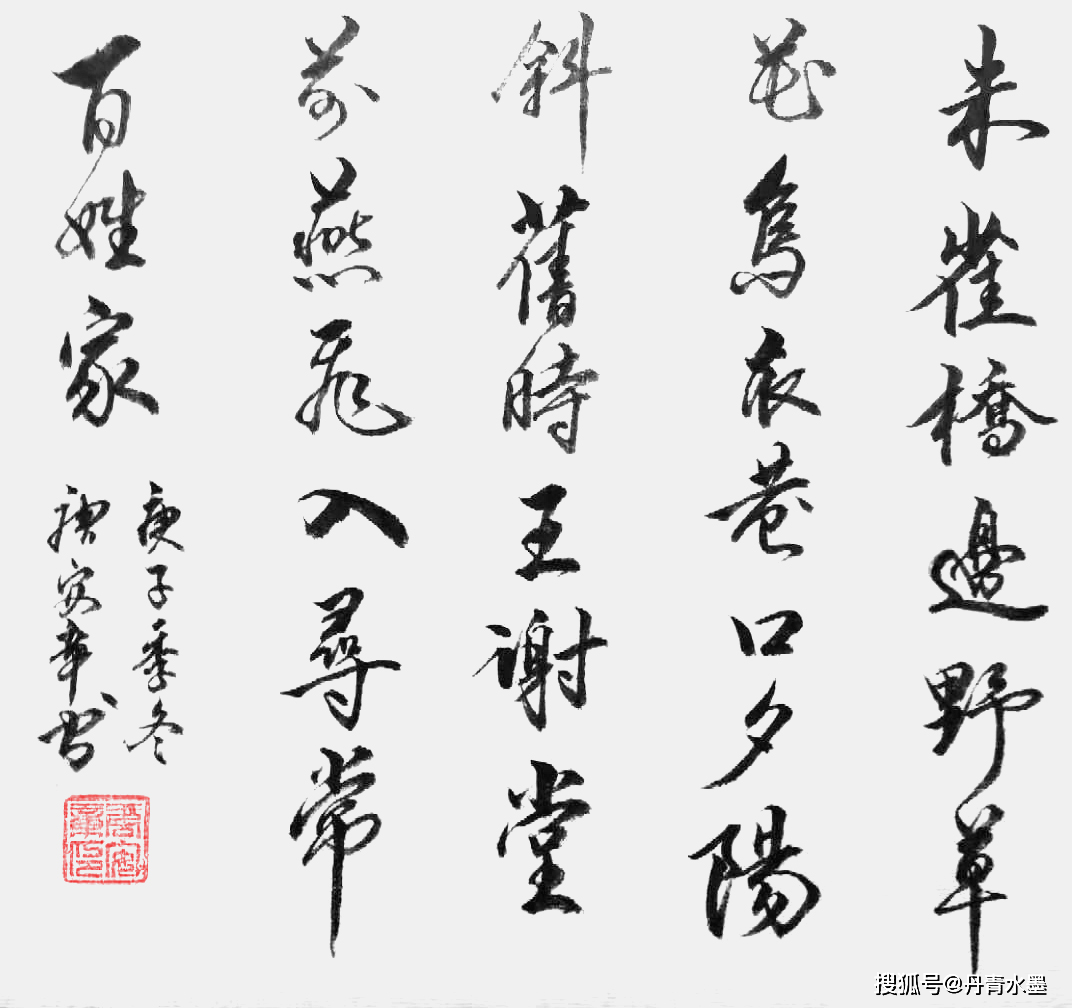 朱雀橋邊野草
花烏衣巷口夕陽
斜舊時王謝堂
前燕飛入尋常
百姓家
庚子季冬
安華书
搜狐号@丹青水墨